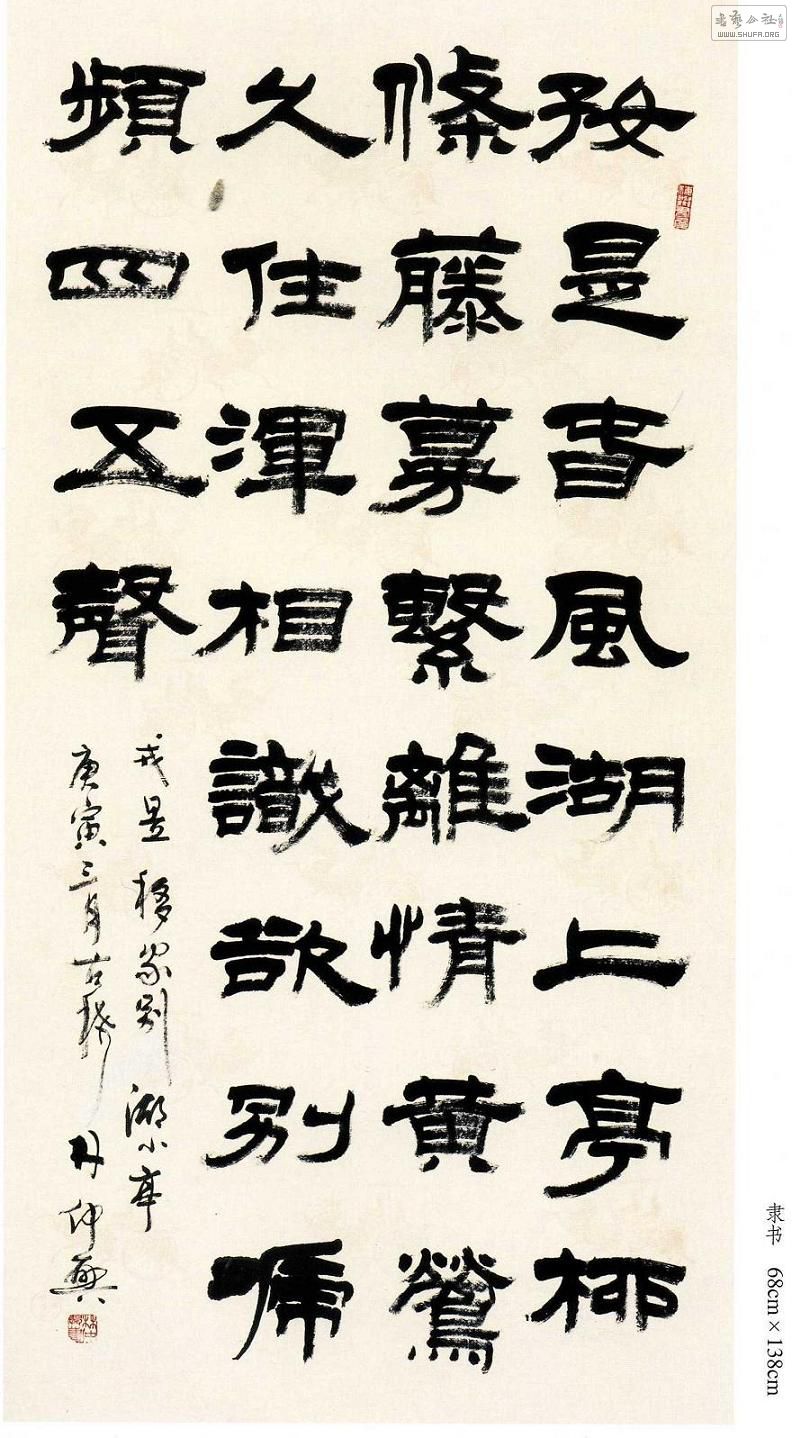 好是春風湖上亭柳
條藤蔓繫離情黄鶯
久住渾相識欲別啼
頻四五聲
戎昱移家别湖小亭
庚寅三月古
仲興
書藝公社
WWW.SHUFA.ORG
隶书 68cm×138cm